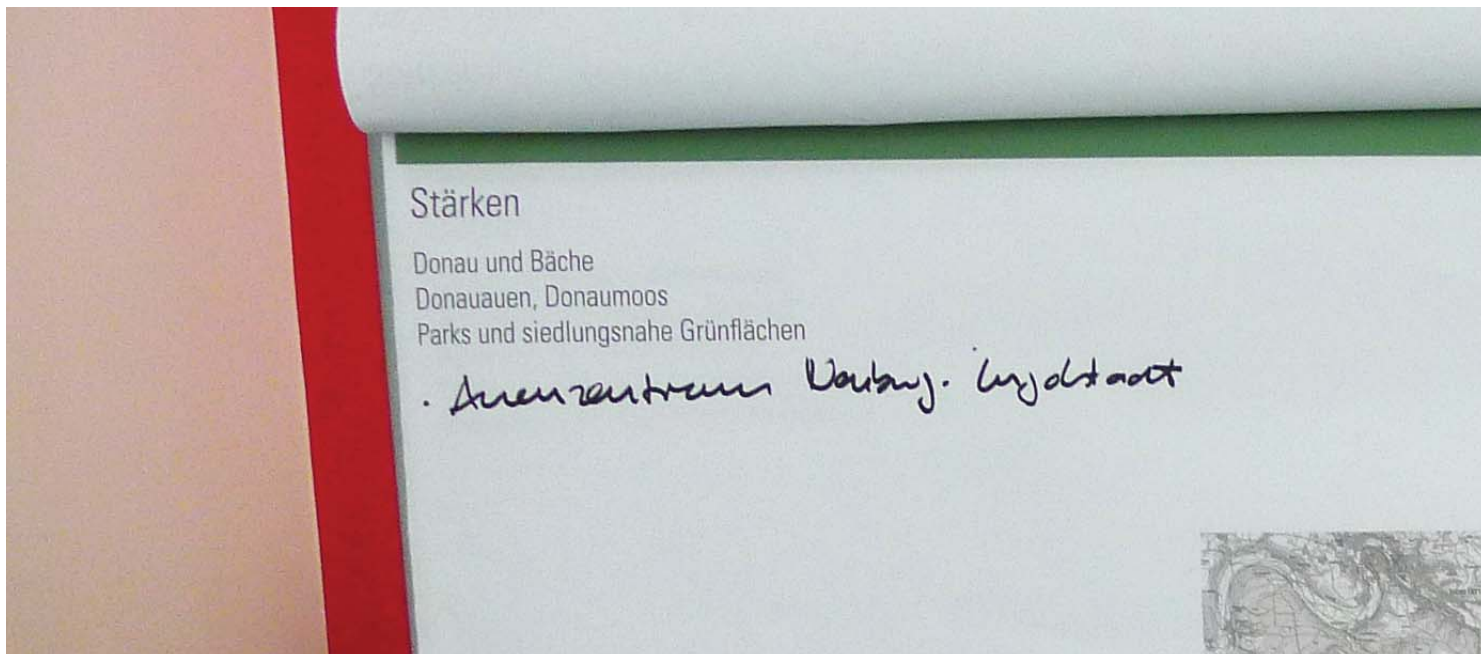 Stärken
Donau und Bäche
Donauauen, Donaumoos
Parks und siedlungsnahe Grünflächen
· Auenzentrum Neuburg · Ingolstadt